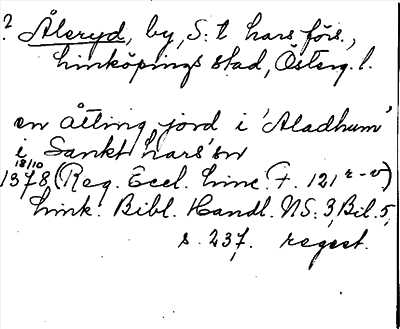 ? Åleryd, by, S:t Lars förs.,
Linköpings stad, Österg. l.
en åtting jord i 'Aladhum'
i Sankt Lars' sn
18/10
1378 (Reg. Eccl. Linc. F. 121 r-v)
Link. Bibl. Handl. NS. 3, Bil. 5,
s. 237. regest.